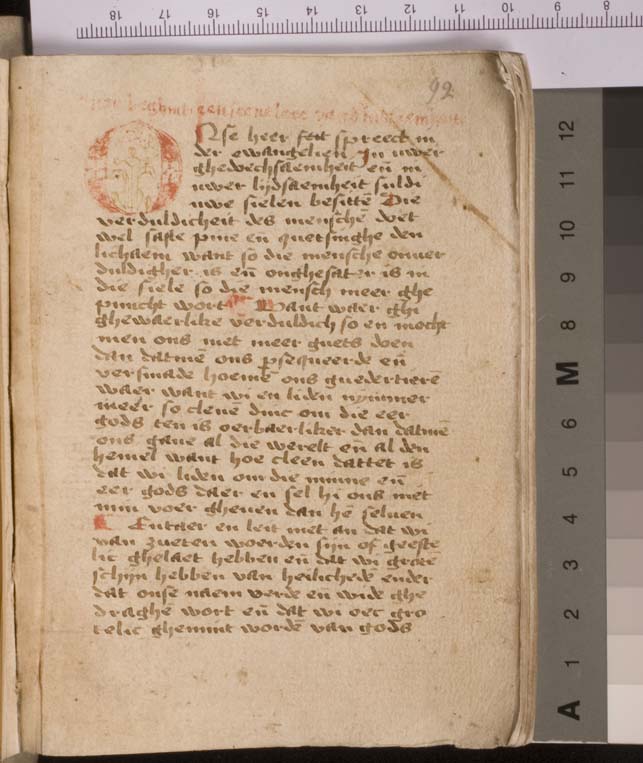 92
Hier beghint een scone leer van verduldicheit
Onse heer seit spreect in
der ewangelien In uwer
ghedechsaemheit en̄ in
uwer lijdsaemheit suldi
uwe sielen besittē Die
verduldicheit des menschē doet
wel sachte pine en̄ quetsinghe den
lichaem want so die mensche onver
duldigher is en̄ onghesater is in
die siele so die mensch meer ghe
pinicht wort Want waer ghi
ghewaerlike verduldich so en mocht
men ons niet meer guets doen
dan datmē ons persequeerde en̄
versmade hoemē ons guedertierē
waer want wi en liden nymmer
meer so clene dinc om die eer
gods ten is oerbaerliker dan datmē
ons gaue al die werelt en̄ al den
hemel want hoe cleen dattet is
dat wi liden om die minne en̄
eer gods daer en sel hi ons niet
min voer gheuen dan hē seluen
Entaer en leit niet an dat wi
van zueten woerden sijn of geeste
lic ghelaet hebben en̄ dat wi grotē
schijn hebben van heilichedē ender
dat onse naem verde en̄ wide ghe
draghē wort en̄ dat wi oec gro
telic ghemint wordē van gods
18 17 16 15 14 13 12 11 10 9 8
12
11
10
9
8
M
6
5
4
3
2
1
A